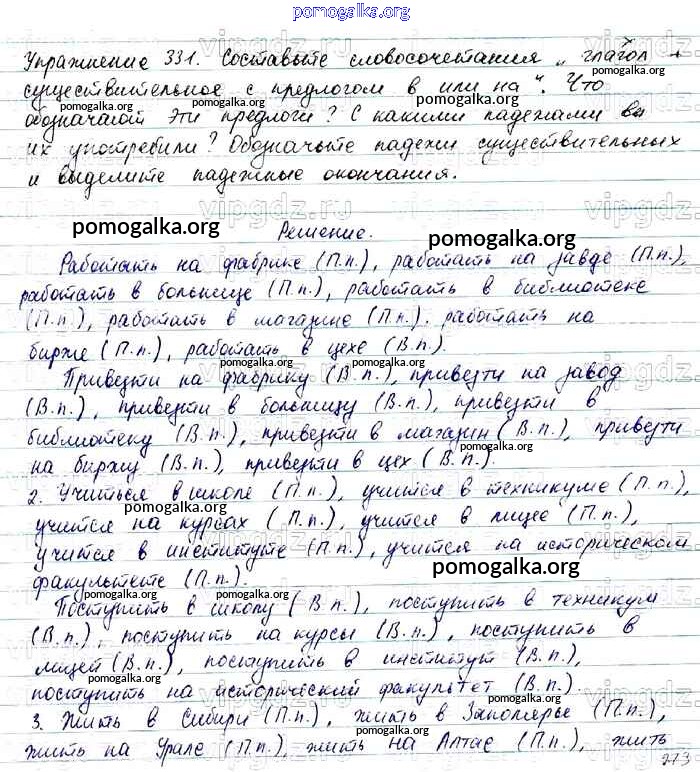 pomogalka.org
Упражнение 331. Составьте словосочетания „глагол +
существительное с предлогом в или на“. Что
pomogalka.org pomogalka.org
обозначают эти предлоги? С какими падежами вы
их употребили? Обозначьте падежи существительных
pomogalka.org pomogalka.org
и выделите падежные окончания.
pomogalka.org Решение. pomogalka.org
Работать на фабрике (П.п.), работать на завде (П.п.),
pomogalka.org
работать в больнице (П.п.), работать в библиотеке
(П.п.), работать в магазине (П.п.). работать на
бирже (П.п.), работать в цехе (В.п.).
pomogalka.org
Привезти на фабрику (В.п.), привезти на завод
(В.п.), привезти в больницу (В.п.), привезти в
pomogalka.org
библиотеку (В.п.), привезти в магазин (В.п.), привезти
pomogalka.org
на биржу (В.п.), привезти в цех (В.п.).
2. Учиться в школе (П.п.), учится в техникуме (П.п.),
pomogalka.org
учится на курсах (П.п.), учится в лицее (П.п.),
учится в институте (П.п.), учится на историческом
факультете (П.п.). pomogalka.org
pomogalka.org
Поступить в школу (В.п.), поступить в техникум
(В.п.), поступить на курсы (В.п.), поступить в
pomogalka.org
лицей (В.п.), поступить в институт (В.п.),
поступить на исторический факултет (В.п.)
pomogalka.org
3. Жить в Сибири (П.п.), жить в Заполярье (П.п.),
жить на Урале (П.п.), жить на Алтае (П.п.), жить
pomogalka.org
273